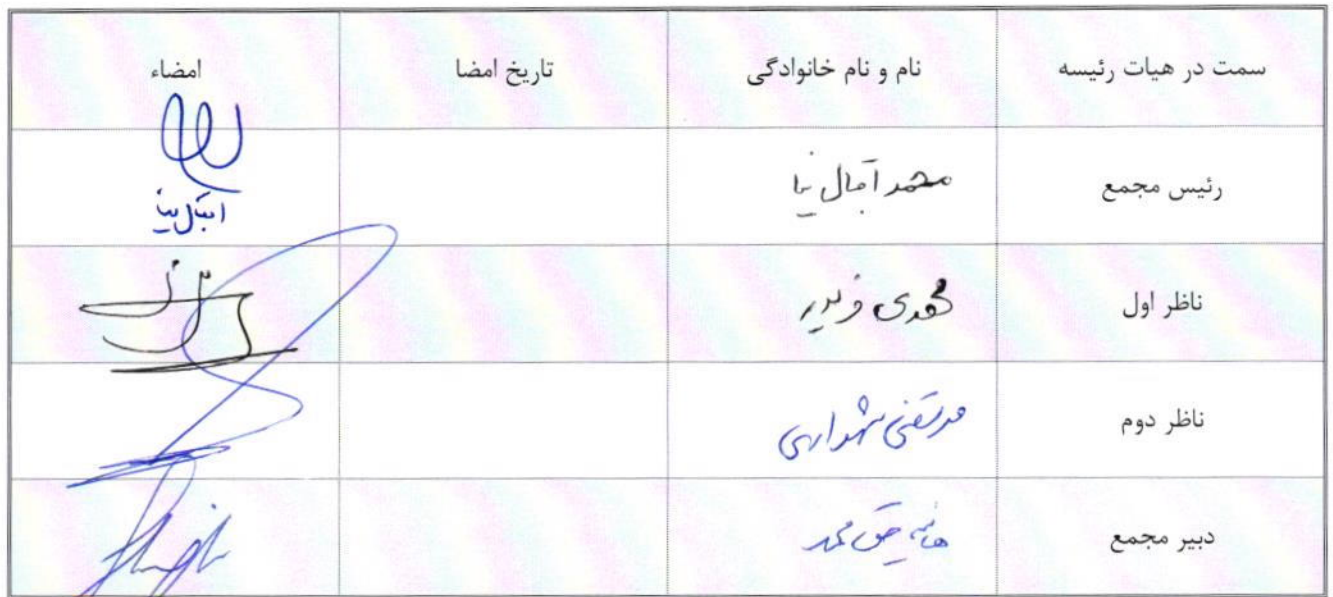 سمت در هیات رئیسه نام و نام خانوادگی تاریخ امضا امضاء
رئیس مجمع محمد اقبال نیا
اقبال نیا
ناظر اول مهدی فریور
ناظر دوم مرتضی شهدایی
دبیر مجمع هانیه حق